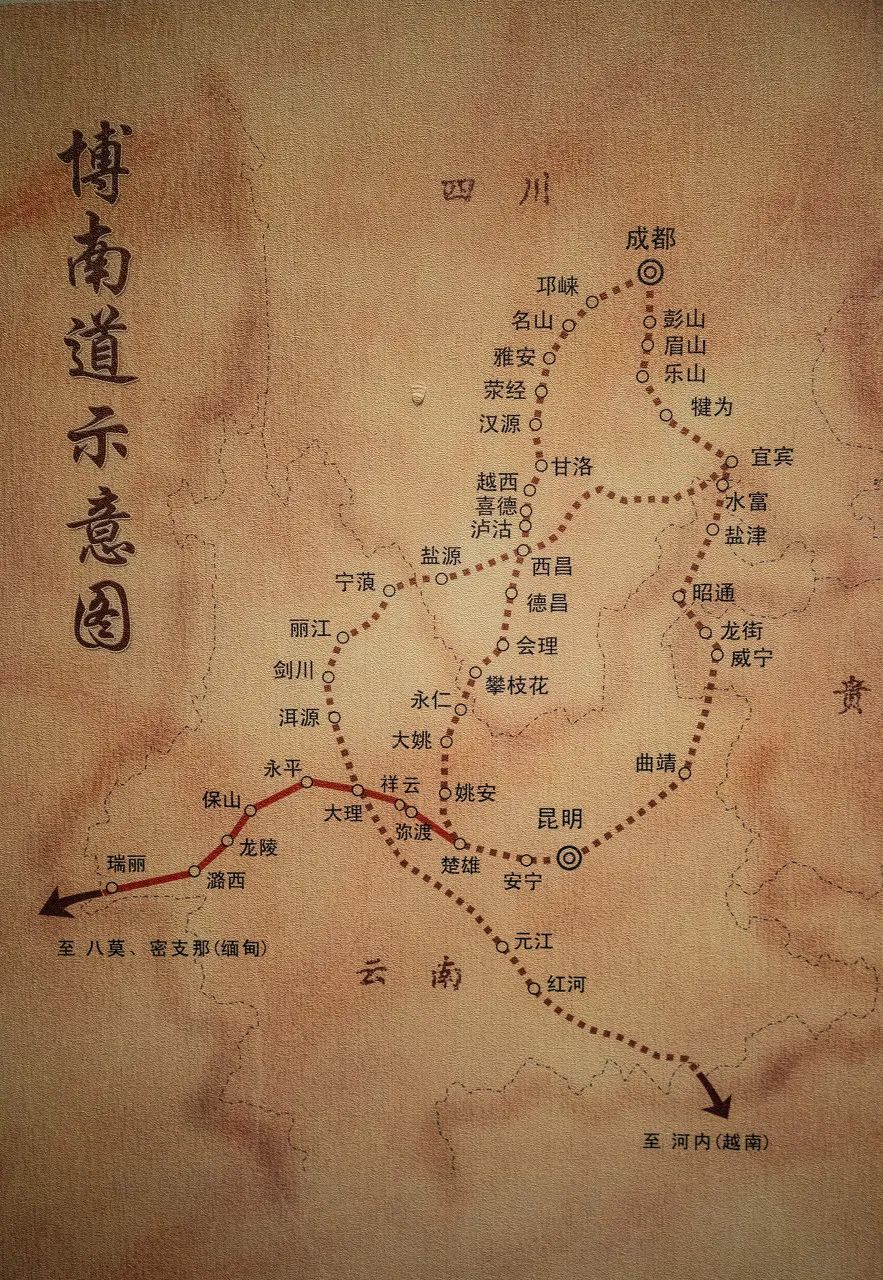 博南道示意图
四川
成都
邛崃
名山
彭山
眉山
雅安
乐山
荥经
犍为
汉源
宜宾
甘洛
越西
水富
喜德
泸沽
盐津
盐源
西昌
宁蒗
昭通
德昌
丽江
龙街
会理
威宁
剑川
攀枝花
贵
永仁
洱源
大姚
曲靖
永平
祥云
姚安
保山
大理
昆明
弥渡
龙陵
瑞丽
楚雄
潞西
安宁
至 八莫、密支那(缅甸)
元江
云南
红河
至 河内(越南)